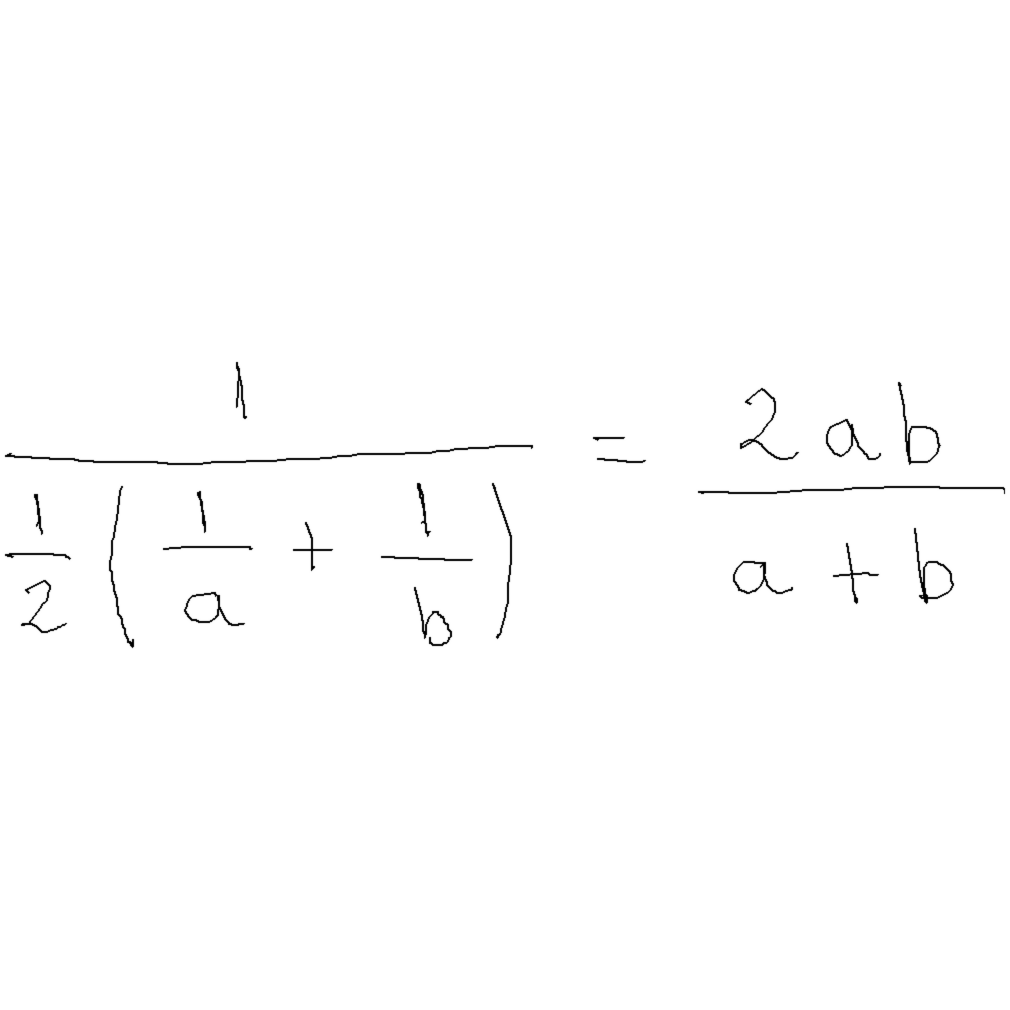 \frac{1}{\frac{1}{2} \left( \frac{1}{a} + \frac{1}{b} \right)} = \frac{2ab}{a+b}